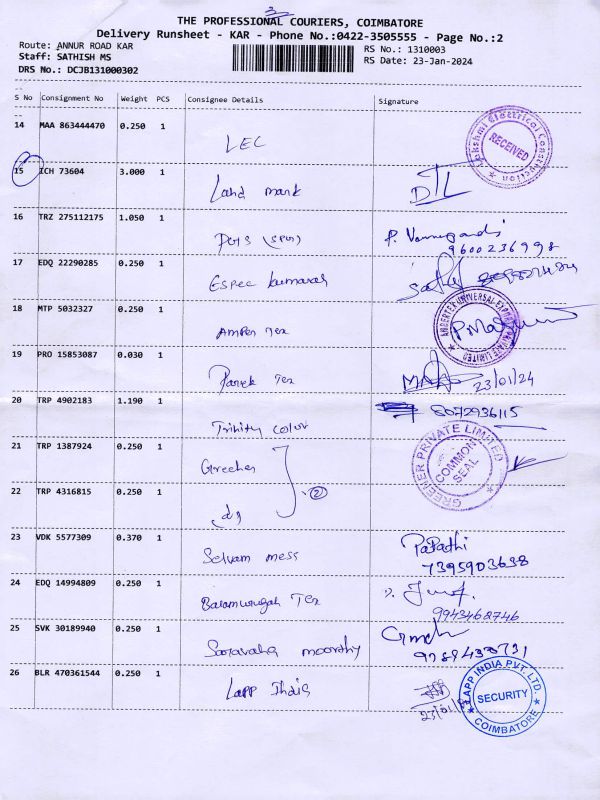 3
THE PROFESSIONAL COURIERS, COIMBATORE
Delivery Runsheet - KAR - Phone No.:0422-3505555 - Page No.:2
Route: ANNUR ROAD KAR
RS No.: 1310003
Staff: SATHISH MS
RS Date: 23-Jan-2024
DRS No.: DCJB131000302
S No Consignment No Weight PCS Consignee Details Signature
14 MAA 863444470 0.250 1
LEC
Lakshmi Electrical Construction
RECEIVED
15 ICH 73604 3.000 1
Land mark
DTL
16 TRZ 275112175 1.050 1
P.
9600236998
17 EDQ 22290285 0.250 1
Espec kumaran
18 MTP 5032327 0.250 1
Amper Tex
19 PRO 15853087 0.030 1
Tex
23/01/24
20 TRP 4902183 1.190 1
Trinity color
8072936115
21 TRP 1387924 0.250 1
Greener
GREENER PRIVATE LIMITED
COMMON SEAL
2
22 TRP 4316815 0.250 1
23 VDK 5577309 0.370 1
Selvam mess
Papathi
7395903638
24 EDQ 14994809 0.250 1
Balamurugan Tex
9943468746
25 SVK 30189940 0.250 1
Saravana moorthy
26 BLR 470361544 0.250 1
Lapp India
LAPP INDIA PVT. LTD.
SECURITY
COIMBATORE